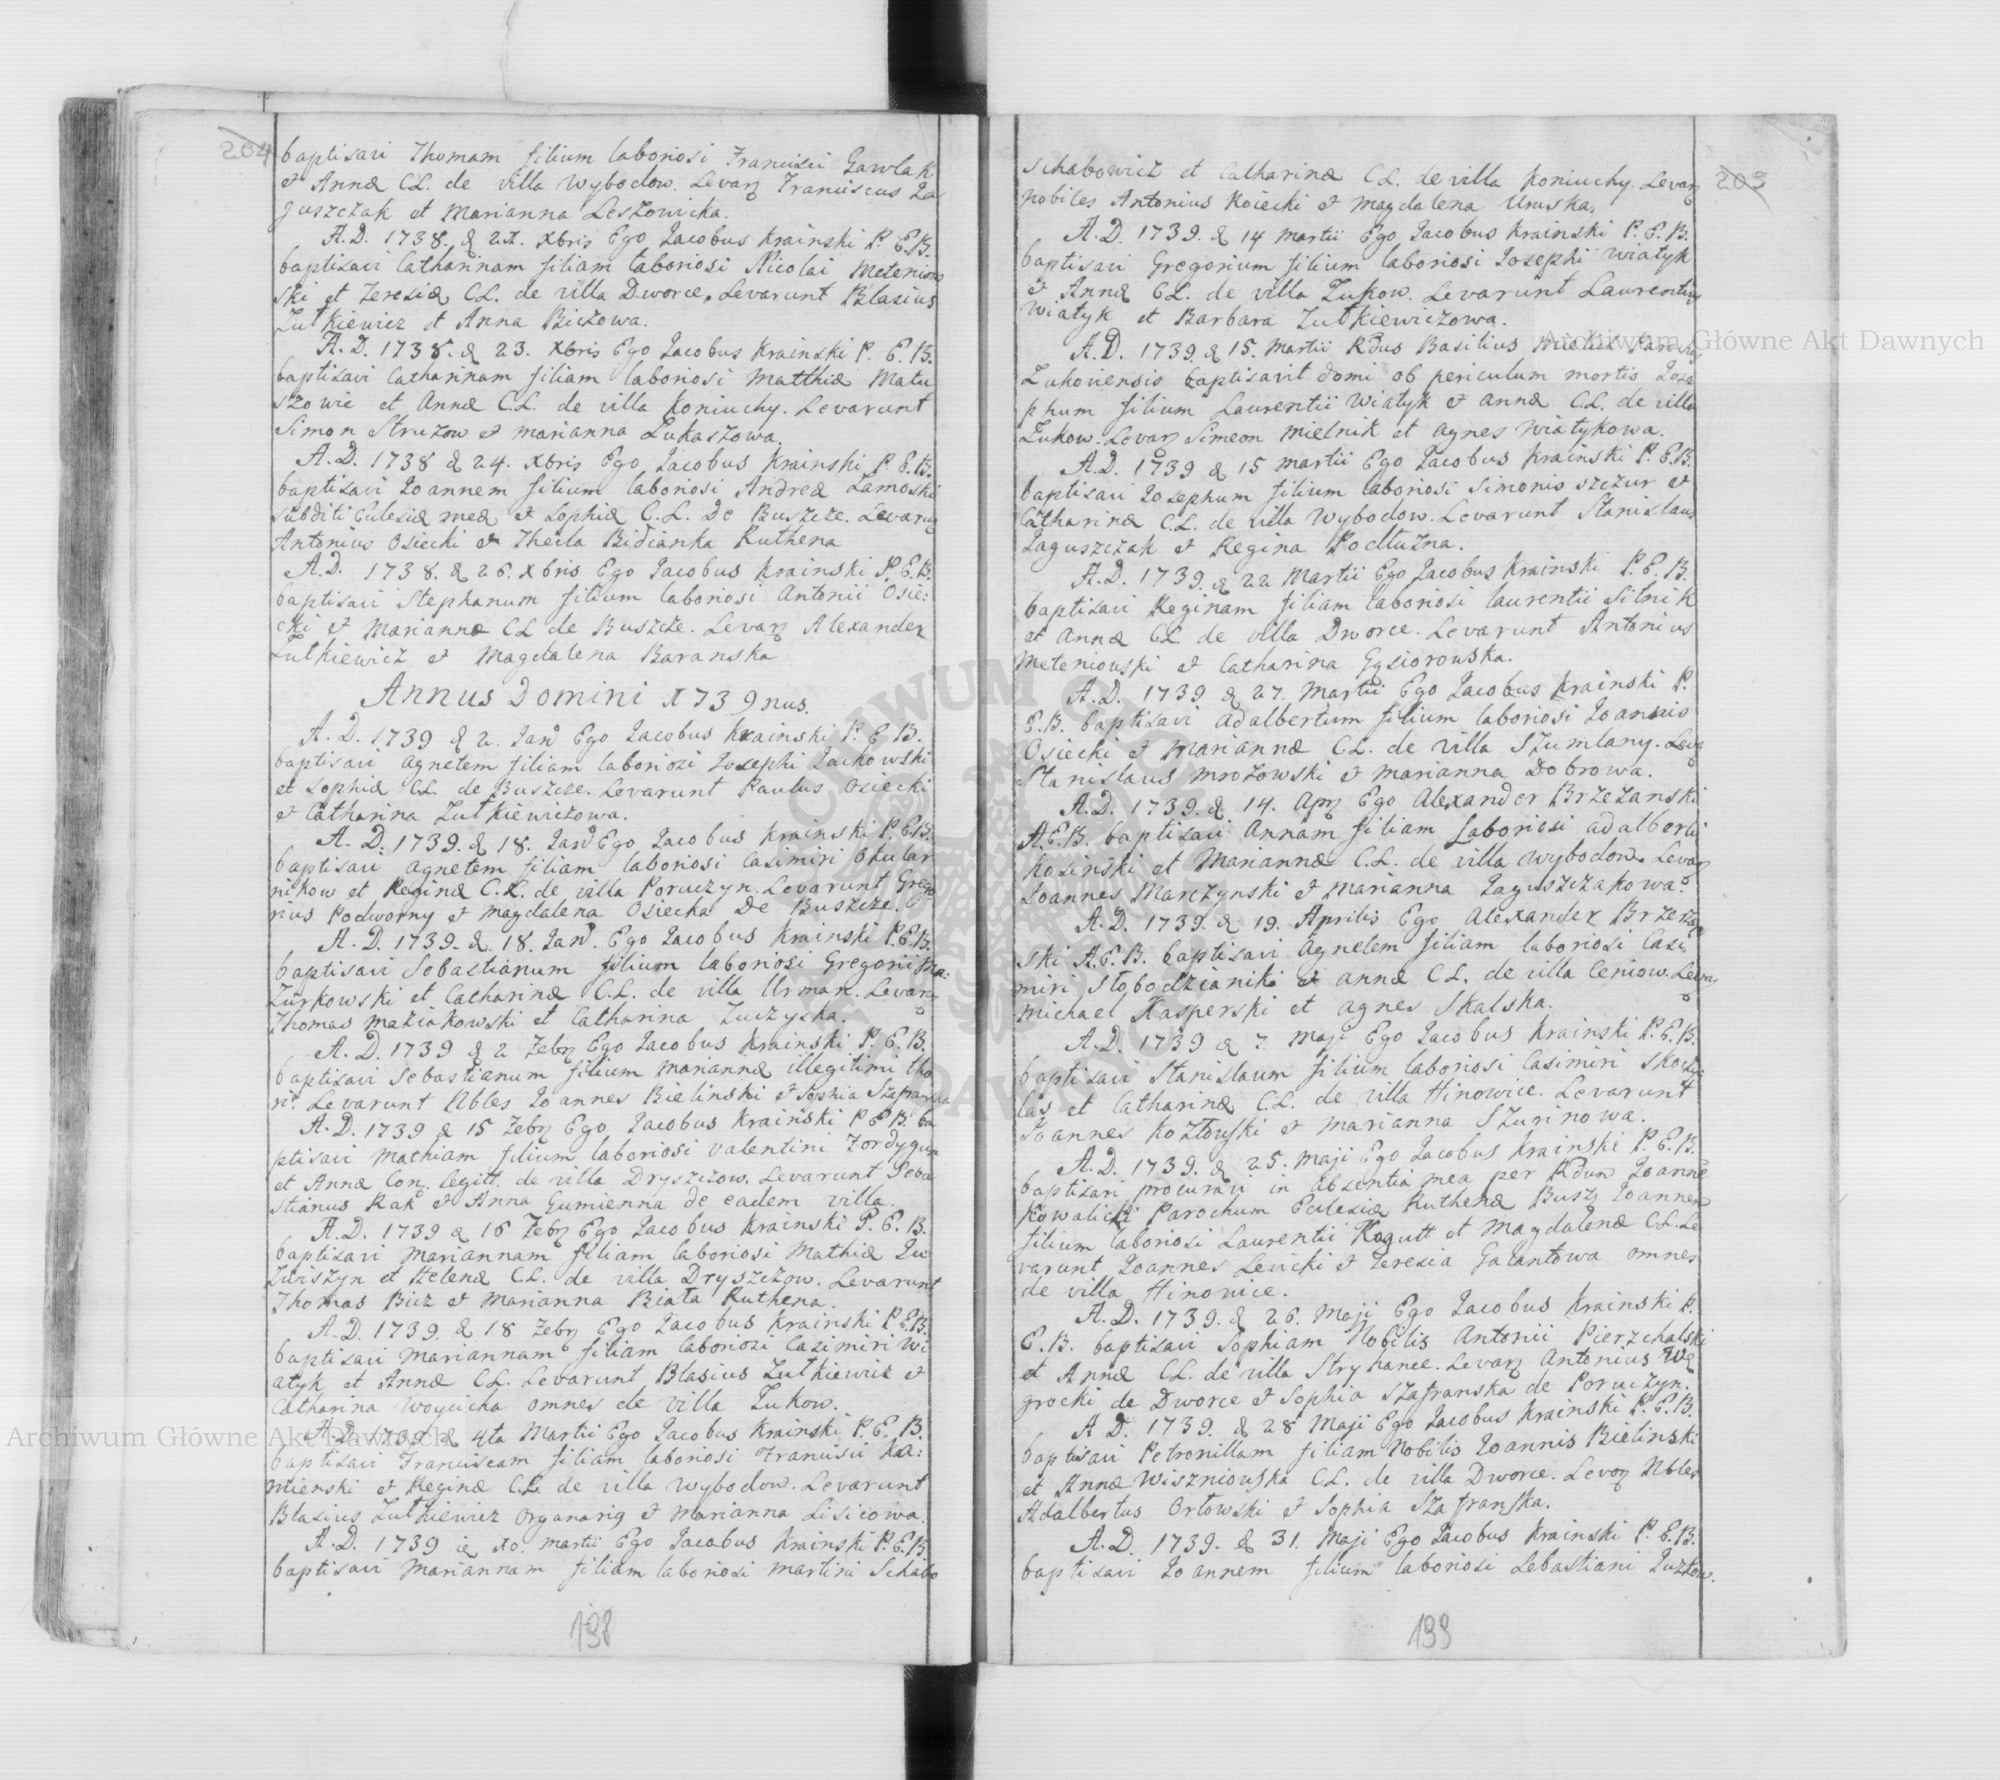 204
baptisavi Thomam filium laboriosi Francisci Gawlak
et Annæ CL. de villa Wybodow. Levarꝫ Franciscus Ja
guszczak et Marianna Leszowicka.
A.D. 1738. d 22. Xbris Ego Jacobus Krainski P. E.B.
baptisavi Catharinam filiam laboriosi Nicolai Meteniow
ski et Teresiæ CL. de villa Dworce. Levarunt Blasius
Zutkiewicz et Anna Biczowa.
A.D. 1738. d 23. Xbris Ego Jacobus Krainski P. E.B.
baptisavi Catharinam filiam laboriosi Matthiæ Matu
szowic et Annæ C.L. de villa Koniuchy. Levarunt
Simon Struzow et Marianna Lukaszowa.
A.D. 1738 d 24. Xbris Ego Jacobus Krainski P. E.B.
baptisavi Joannem filium laboriosi Andreæ Zamoski
subditi Eulesiæ meæ et Sophiæ C.L. De Buszcze. Levarunt
Antonius Osiecki et Thecla Bidianka Ruthena
A.D. 1738. d 26. Xbris Ego Jacobus Krainski P.E.B.
baptisavi Stephanum filium laboriosi Antonii Osie:
cki et Mariannæ CL de Buszcze. Levarꝫ Alexander
Zutkiewicz et Magdalena Baranska
Annus Domini 1739nus.
A.D. 1739 d 2. Janꝰ Ego Jacobus Krainski P. E B.
baptisavi Agnetem filiam laboriosi Josephi Jackowski
et Sophiæ CL. de Buszcze. Levarunt Paulus Osiecki
et Catharina Zutkiewiczowa.
A. D. 1739. d 18. Janꝰ Ego Jacobus Krainski P.E.B.
baptisavi Agnetem filiam laboriosi Casimiri Okular
nikow et Reginæ C.L. de villa Poruczyn. Levarunt Grego
rius Podworny et Magdalena Osiecka De Buszcze.
A. D. 1739. d. 18. Janꝰ. Ego Jacobus Krainski P.E.B.
baptisavi Sebastianum filium laboriosi Gregorii Ma:
zurkowski et Catharinæ C.L. de villa Urman. Levarꝫ
Thomas Maziakowski et Catharina Zuczyska.
A. D. 1739 d 2 Febꝫ Ego Jacobus Krainski P. E. B.
baptisavi Sebastianum filium Mariannæ illegitimi tho
ri. Levarunt Nbles Joannes Bielinski et Sophia Szafranska
A. D. 1739 d 15 Febꝫ Ego Jacobus Krainski P E B. ba
ptisavi Mathiam filium laboriosi Valentini Fordygun
et Annæ Conꝫ. legitt. de villa Dryszczow. Levarunt Seba
stianus Rak et Anna Gumienna de eadem villa.
A. D. 1739 d 16 Febꝫ Ego Jacobus Krainski P. E. B.
baptisavi Mariannam filiam laboriosi Mathiæ Ju
zwiszyn et Helenæ C.L. de villa Dryszczow. Levarunt
Thomas Bicz et Marianna Biała Ruthena.
A. D. 1739. d 18 Febꝫ Ego Jacobus Krainski P E.B.
baptisavi Mariannam filiam laboriosi Casimiri Wi
atyk et Annæ CL. Levarunt Blasius Zutkiewicz et
Catharina Woycicha omnes de villa Zukow.
A. D. 1739 d 4ta Martii Ego Jacobus Krainski P. E. B.
baptisavi Franciscam filiam laboriosi Francisci Ka:
mienski et Reginæ C.L. de villa Wybodow. Levarunt
Blasius Zutkiewicz Organarig et Marianna Lisicowa.
A. D. 1739 ie 10. Martii Ego Jacobus Krainski P.E.B.
baptisavi Mariannam filiam laboriosi Martini Schabo
198
203
schabowicz et Catharinæ C.L. de villa Koniuchy. Levarꝫ
nobiles Antonius Koiecki et Magdalena Uruska.
A. D. 1739. d 14 Martii Ego Jacobus Krainski P. E. B.
baptisavi Gregorium filium laboriosi Josephi Wiatyk
et Annæ CL. de villa Zukow. Levarunt Laurentius
Wiatyk et Barbara Zutkiewiczowa.
A. D. 1739. d 15. Martii Rdus Basilius Parochus
Zukoviensis baptisavit domi ob periculum mortis Jose
phum filium Laurentii Wiatyk et Annæ C.L. de villa
Zukow. Levarꝫ Simeon Mielnik et Agnes Wiatykowa.
A. D. 1739 d 15 Martii Ego Jacobus Krainski P. E.B.
baptisavi Josephum filium laboriosi Simonis Szczur et
Catharinæ C.L. de villa Wybodow. Levarunt Stanislaus
Jaguszczak et Regina Podłuzna.
A. D. 1739. d 22 Martii Ego Jacobus Krainski P. E. B.
baptisavi Reginam filiam laboriosi Laurentii Sitnik
et Annæ CL. de villa Dworce. Levarunt Antonius
Meteniouski et Catharina Gąsiorowska.
A. D. 1739 d 27. Martii Ego Jacobus Krainski P.
E. B. baptisavi Adalbertum filium laboriosi Joannis
Osiecki et Mariannæ C.L. de villa Szumlany. Levꝫ
Stanislaus Mrozowski et Marianna Dobrowa.
A. D. 1739. d. 14. Aprꝫ Ego Alexander Brzezanski
A.E.B. baptisavi Annam filiam laboriosi Adalberti
Kosinski et Mariannæ C.L. de villa Wybodow. Levarꝫ
Joannes Marczynski et Marianna Jaguszczakowa.
A. D. 1739. d 19. Aprilis Ego Alexander Brzezan
ski A.E.B. baptisavi Agnetem filiam laboriosi Casi
miri Słobodzianik et Annæ C L. de villa Ceniow. Levar
Michael Kasperski et Agnes Skalska.
A. D. 1739 d 7. Maji Ego Jacobus Krainski P.E.B.
baptisavi Stanislaum filium laboriosi Casimiri Skoczy
las et Catharinæ C.L. de villa Hinowice. Levarunt
Joannes Kozłouski et Marianna Szurinowa.
A. D. 1739. d 25. Maji Ego Jacobus Krainski P. E. B.
baptisari procuravi in absentia mea per Rdum Joannē
Kowalicki Parochum Eclesiæ Ruthenæ Buszꝫ Joannem
filium laboriosi Laurentii Kogutt et Magdalenæ C.L. Le
varunt Joannes Levicki et Teresia Galantowa omnes
de villa Hinowice.
A. D. 1739. d 26. Maji Ego Jacobus Krainski P.
E. B. baptisavi Sophiam Nobilis Antonii Pierzchalski
et Annæ CL. de villa Stryhance. Levarꝫ Antonius Wę
grocki de Dworce et Sophia Szafranska de Poruczyn.
A D. 1739. d 28 Maji Ego Jacobus Krainski P. E. B.
baptisavi Petronillam filiam Nobilis Joannis Bielinski
et Annæ Wiszniouska C.L. de villa Dworce. Levarꝫ Nbles
Adalbertus Orłowski et Sophia Szafranska.
A. D. 1739. d 31. Maji Ego Jacobus Krainski P. E.B.
baptisavi Joannem filium laboriosi Sebastiani Juzkow.
199
Archiwum Główne Akt Dawnych
Archiwum Główne Akt Dawnych